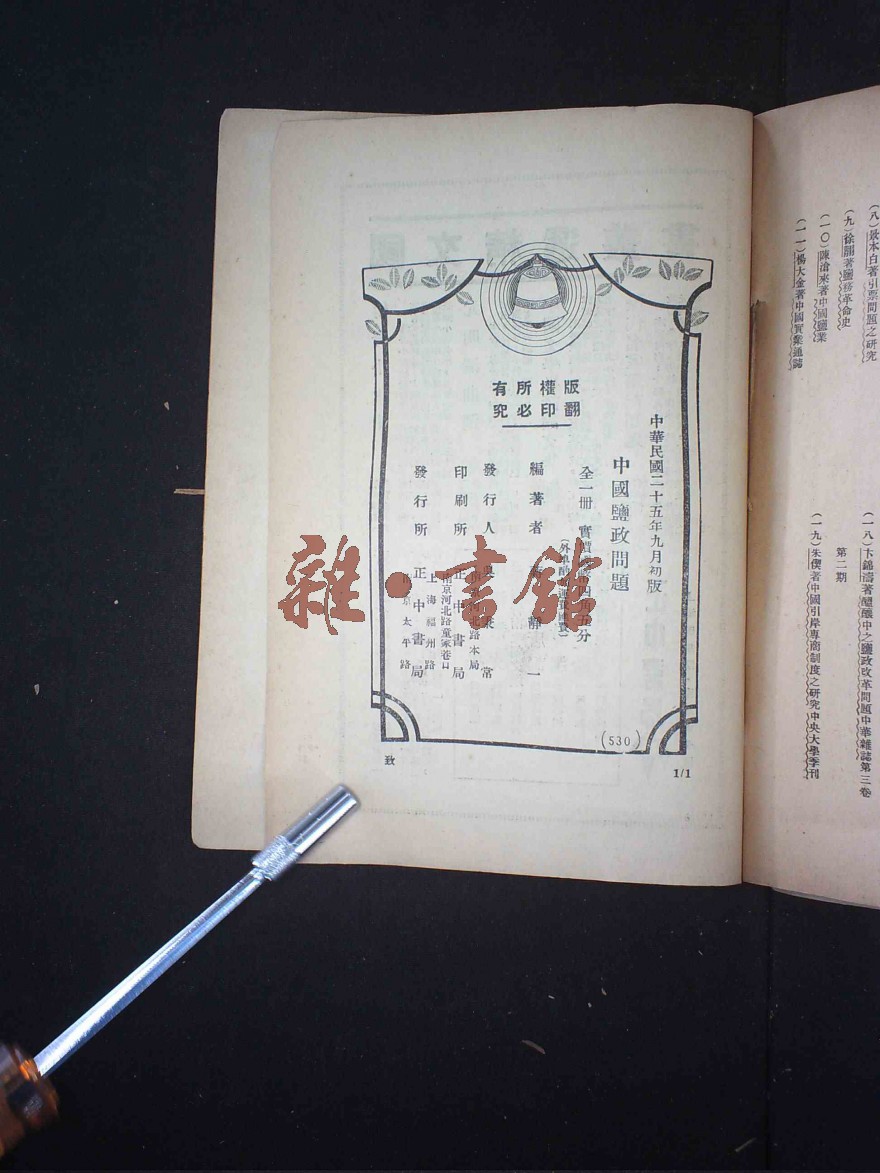 (八)景本白著引票問題之研究
(九)徐
著鹽務革命史
(一〇)陳滄來著中國鹽業
(一一)楊大金著中國實業通誌
(一八)卞錦濤著醞釀中之鹽政改革問題中華雜誌第三卷
第二期
(一九)朱偰著中國引岸專商制度之研究中央大學季刊
版權所有
翻印必究
中華民國二十五年九月初版
中國鹽政問題
全一冊 實價
四角五分
(外埠
編著者
靜一
發行人
常
南京河北路本局
印刷所 正中書局
南京河北路童家巷口
發行所 正中書局
上海福州路
南京太平路
(530)
致
1/1
雜·書館